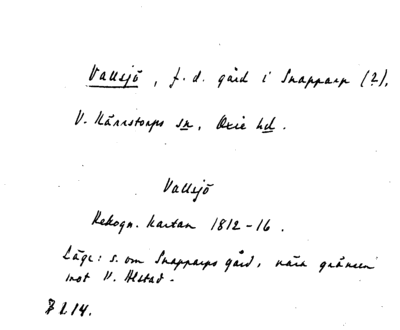 Vallsjö, f. d. gård i Snapparp (?),
V. Kärrstorps sn, Oxie hd.
Vallsjö
Rekogn. kartan 1812-16.
Läge: s. om Snapparps gård, nära gränsen
mot V. Alstad.